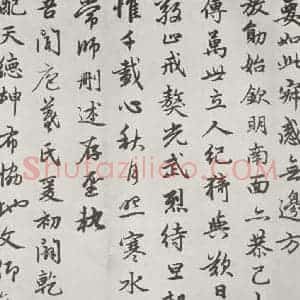 要如此寂感無邊方
放勛始欽明南面亦恭己
傳萬世立人紀猗與歎日
敬止戒獒光武烈待旦
惟千載心秋月照寒水
常師刪述存聖軌
吾聞庖羲氏爰初闢乾
配天德坤布協地文仰
Shufaziliao.com